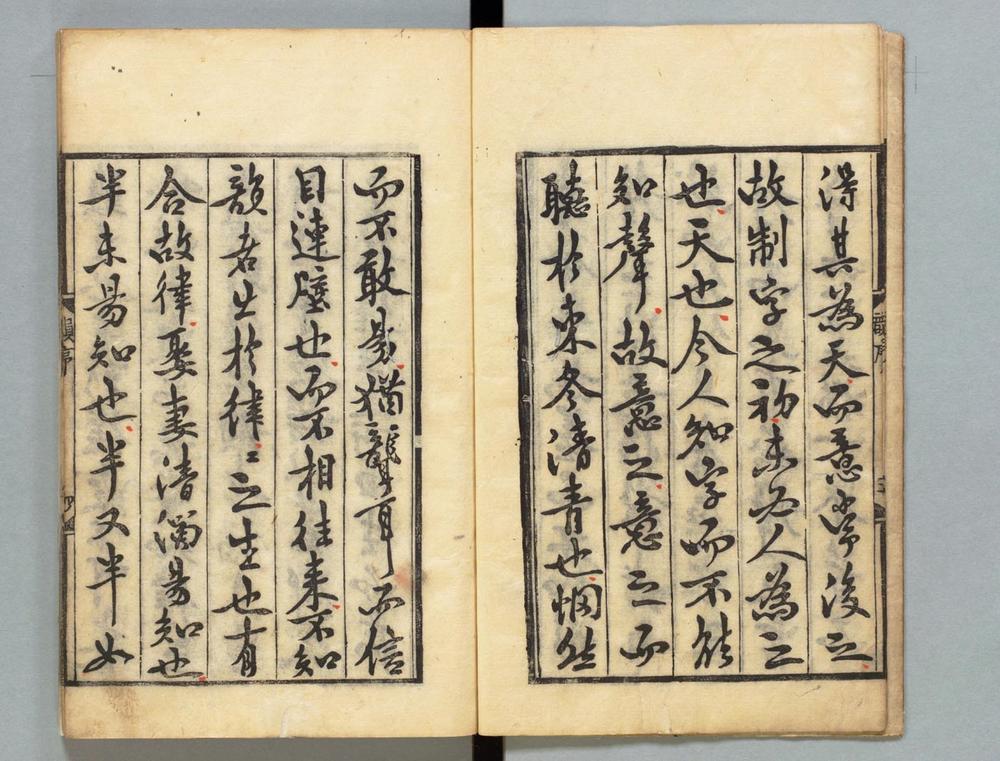 得其為天而意常後之
故制字之初未必人為之
也天也今人知字而不能
知聲故意之意之而
聽於東冬清青也惘然
而不敢易猶聾耳而信
目連壁也而不相往来不知
韻者生於律〻之生也有
合故律娶妻清濁易知也
半未易知也半又半如
韻序